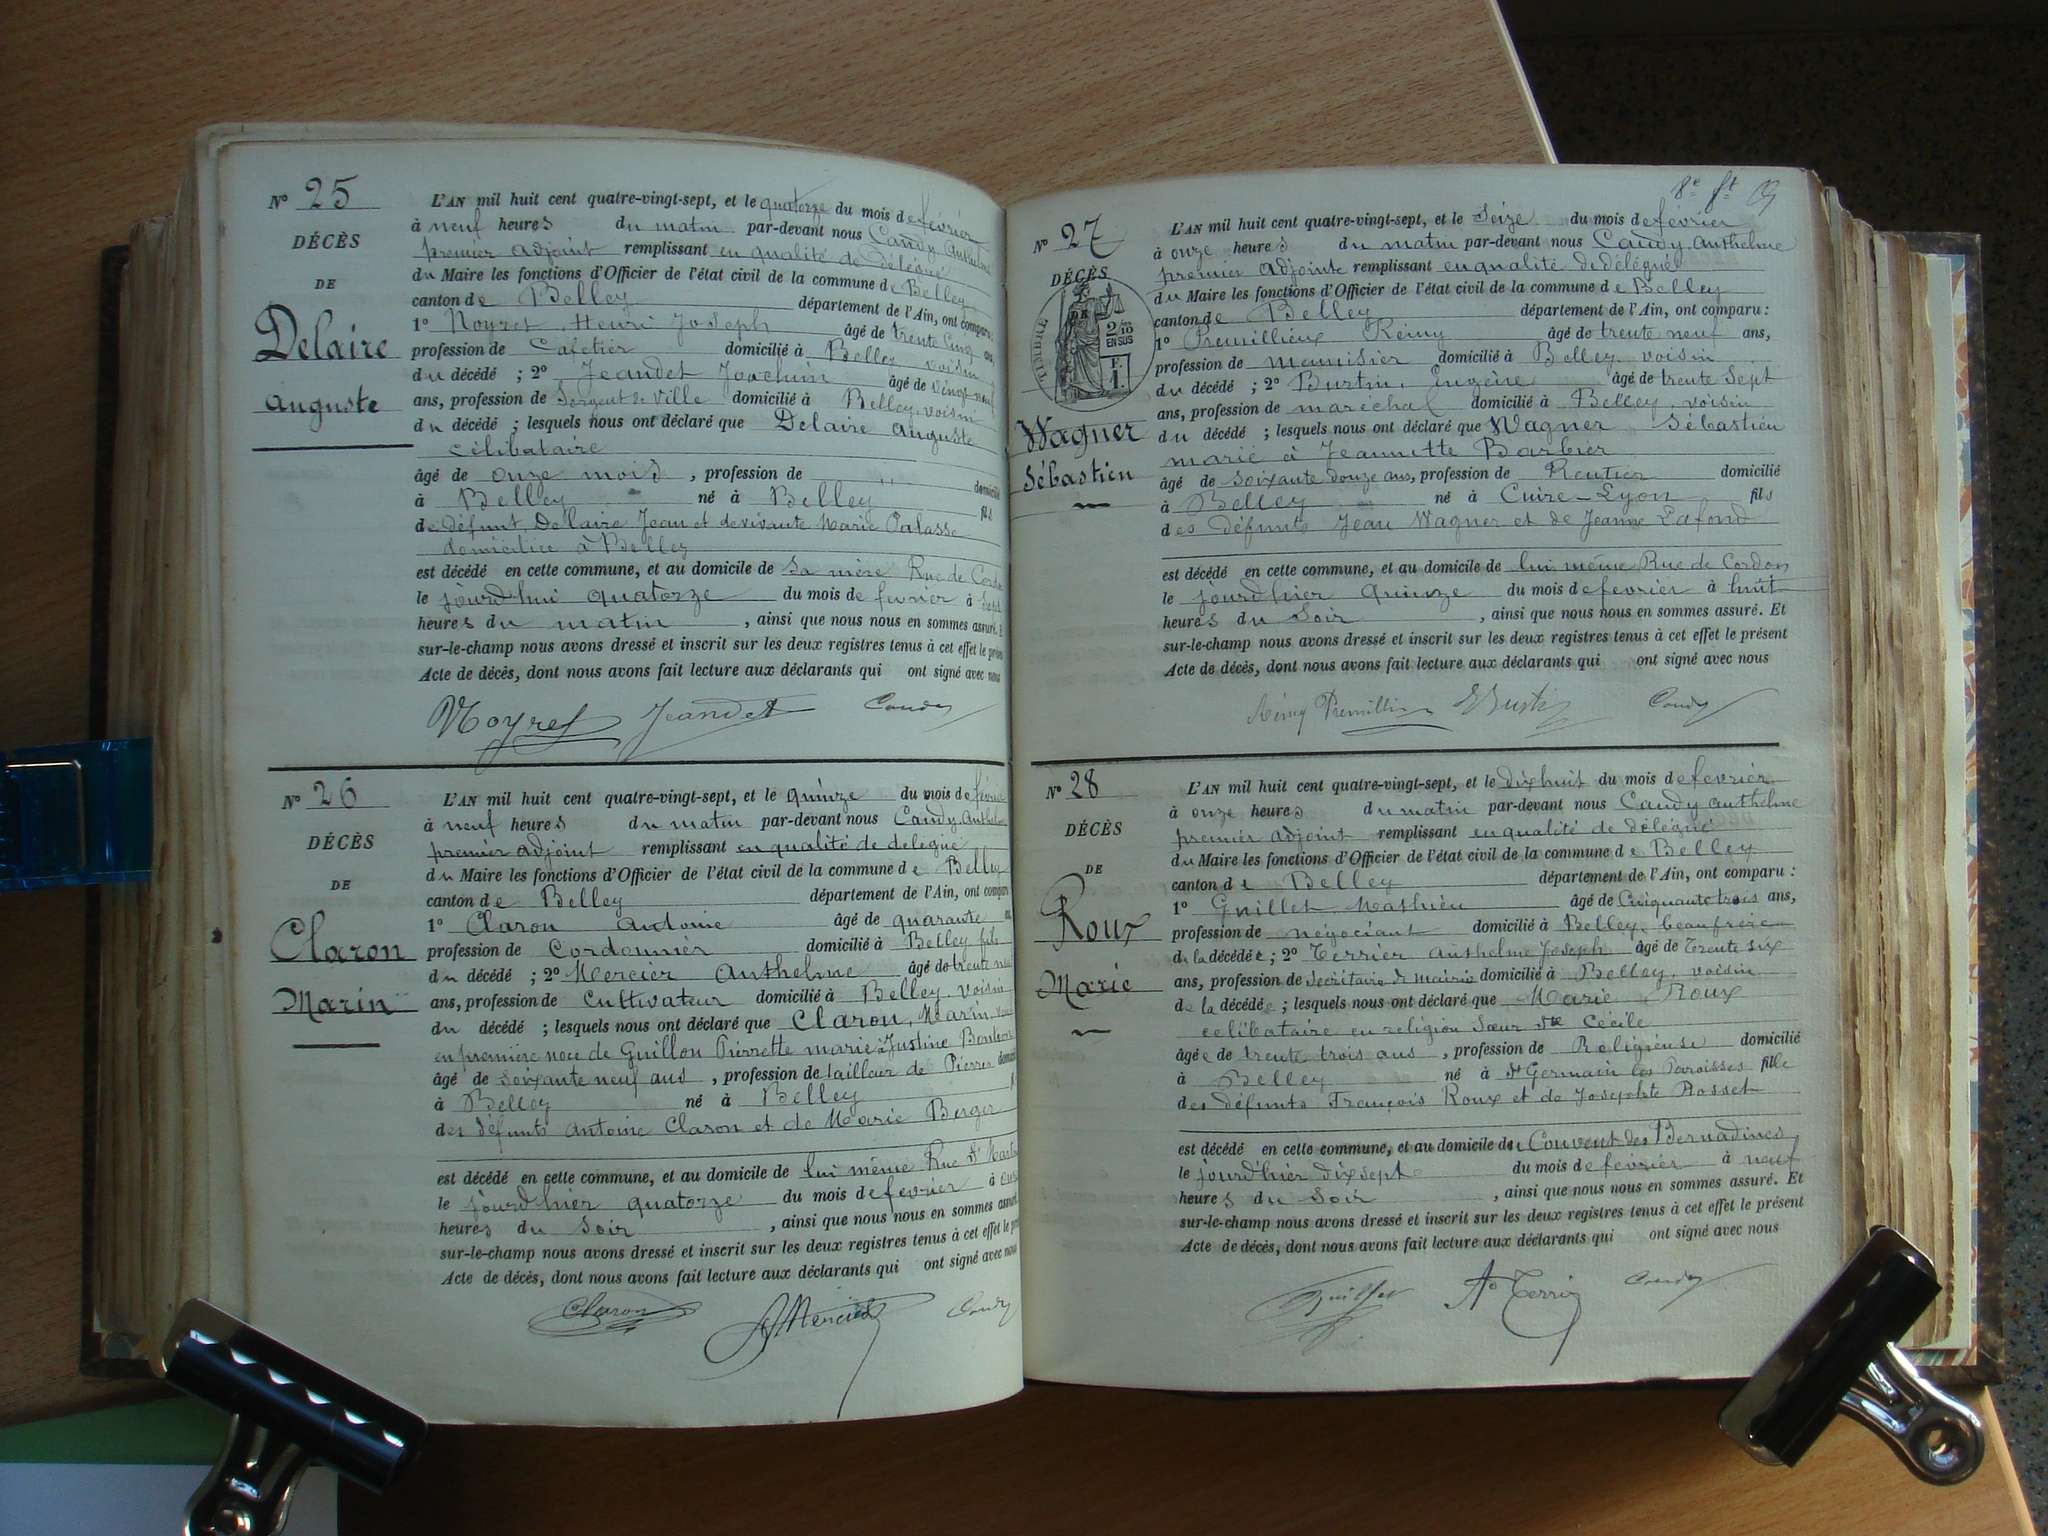 Nº 25
DÉCÈS
DE
Delaire
Auguste
L'AN mil huit cent quatre-vingt-sept, et le quatorze du mois de février
à neuf heures du matin par-devant nous Candy Anthelme
premier adjoint remplissant en qualité de délégué
du Maire les fonctions d'Officier de l'état civil de la commune de Belley
canton de Belley département de l'Ain, ont comparu:
1º Noyret Henri Joseph âgé de trente cinq ans,
profession de Cafetier domicilié à Belley voisin
du décédé ; 2º Jeandet Joachim âgé de vingt neuf
ans, profession de Sergent de Ville domicilié à Belley, voisin
du décédé ; lesquels nous ont déclaré que Delaire Auguste
célibataire
âgé de onze mois , profession de ,, domicilié
à Belley né à Belley fils
de défunt Delaire Jean et de vivante Marie Palasse
domiciliée à Belley
est décédé en cette commune, et au domicile de Sa mère Rue de Cordon
le jourd'hui quatorze du mois de fevrier à Sept
heures du matin , ainsi que nous nous en sommes assuré. Et
sur-le-champ nous avons dressé et inscrit sur les deux registres tenus à cet effet le présent
Acte de décès, dont nous avons fait lecture aux déclarants qui ont signé avec nous
Noyret Jeandet Candy
Nº 26
DÉCÈS
DE
Claron
Marin
L'AN mil huit cent quatre-vingt-sept, et le quinze du mois de février
à neuf heures du matin par-devant nous Candy Anthelme
premier adjoint remplissant en qualité de délégué
du Maire les fonctions d'Officier de l'état civil de la commune de Belley
canton de Belley département de l'Ain, ont comparu
1º Claron Antoine âgé de quarante
profession de Cordonnier domicilié à Belley fils
du décédé ; 2º Mercier Anthelme âgé de trente neuf
ans, profession de Cultivateur domicilié à Belley, voisin
du décédé ; lesquels nous ont déclaré que Claron, Marin,
en première noce de Guillon Pierrette marié à Justine
âgé de soixante neuf ans , profession de tailleur de Pierres domicilié
à Belley né à Belley
des défunts Antoine Claron et de Marie Berger
est décédé en cette commune, et au domicile de lui même Rue St Martin
le jourd'hier quatorze du mois de fevrier à onze
heures du Soir , ainsi que nous nous en sommes assuré
sur-le-champ nous avons dressé et inscrit sur les deux registres tenus à cet effet le présent
Acte de décès, dont nous avons fait lecture aux déclarants qui ont signé avec nous
Claron AMercier Candy
8e ft
Nº 27
DÉCÈS
DE
TIMBRE
2/10
EN SUS
F.
1.
Wagner
Sébastien
L'AN mil huit cent quatre-vingt-sept, et le Seize du mois de février
à onze heures du matin par-devant nous Candy Anthelme
premier Adjointe remplissant en qualité de délégué
du Maire les fonctions d'Officier de l'état civil de la commune de Belley
canton de Belley département de l'Ain, ont comparu :
1º Premillieux Rémy âgé de trente neuf ans,
profession de menuisier domicilié à Belley voisin
du décédé ; 2º Burtin, Eugène âgé de trente Sept
ans, profession de maréchal domicilié à Belley, voisin
du décédé ; lesquels nous ont déclaré que Wagner Sébastien
marié à Jeannette Barbier
âgé de soixante douze ans, profession de Rentier domicilié
à Belley né à Cuire-Lyon fils
des défunts Jean Wagner et de Jeanne Lafond
est décédé en cette commune, et au domicile de lui même Rue de Cordon
le jourd'hier Quinze du mois de fevrier à huit
heures du Soir , ainsi que nous nous en sommes assuré. Et
sur-le-champ nous avons dressé et inscrit sur les deux registres tenus à cet effet le présent
Acte de décès, dont nous avons fait lecture aux déclarants qui ont signé avec nous
Rémy Premillieux EBurtin Candy
Nº 28
DÉCÈS
DE
Roux
Marie
L'AN mil huit cent quatre-vingt-sept, et le dixhuit du mois de fevrier
à onze heures du matin par-devant nous Candy Anthelme
premier adjoint remplissant en qualité de délégué
du Maire les fonctions d'Officier de l'état civil de la commune de Belley
canton de Belley département de l'Ain, ont comparu :
1º Guillet Mathieu âgé de Cinquante trois ans,
profession de négociant domicilié à Belley, beaufrère
de la décédée ; 2º Terrier Anthelme Joseph âgé de trente six
ans, profession de Secrétaire de mairie domicilié à Belley, voisin
de la décédée ; lesquels nous ont déclaré que Marie Roux
celibataire en religion Sœur Ste Cécile
âgée de trente trois ans , profession de Religieuse domicilié
à Belley né à St Germain les Paroisses fille
des défunts François Roux et de Josephte Rosset
est décédé en cette commune, et au domicile du Couvent des Bernadines
le jourd'hier dixsept du mois de février à neuf
heures du Soir , ainsi que nous nous en sommes assuré. Et
sur-le-champ nous avons dressé et inscrit sur les deux registres tenus à cet effet le présent
Acte de décès, dont nous avons fait lecture aux déclarants qui ont signé avec nous
Guillet Terrier Candy